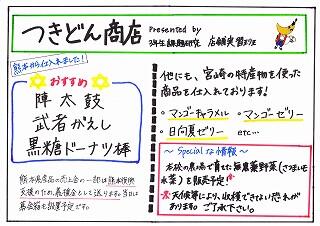 つきどん商店
Presented by
3年生 課題研究 店舗実習
熊本から仕入れました!
おすすめ
陣太鼓
武者がえし
黒糖ドーナツ棒
熊本県産品の売上金の一部は熊本復興
支援のため、義援金として送ります。当日は
募金箱も設置予定です。
他にも、宮崎の特産物を使った
商品を仕入れております!
・マンゴーキャラメル ・マンゴーゼリー
・日向夏ゼリー etc…
~ Specialな情報 ~
本校の農場で育てた無農薬野菜(さつまいも
水菜)を販売予定!
※天候等により、収穫できない恐れが
あります。ご了承下さい。